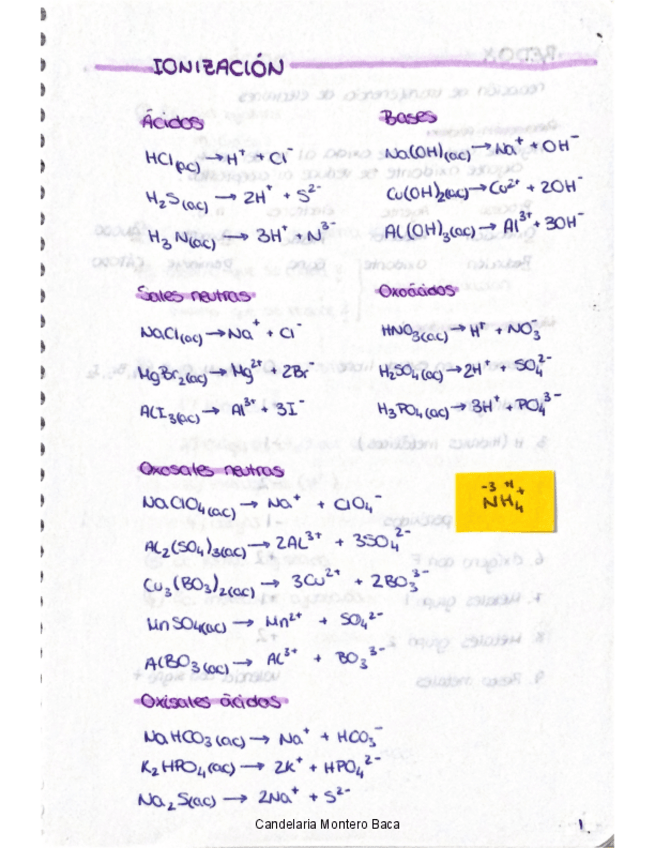 IONIZACIÓN
Ácidos
HCl(ac) → H⁺ + Cl⁻
H₂S(ac) → 2H⁺ + S²⁻
H₃N(ac) → 3H⁺ + N³⁻
Bases
Na(OH)(ac) → Na⁺ + OH⁻
Cu(OH)₂(ac) → Cu²⁺ + 2OH⁻
Al(OH)₃(ac) → Al³⁺ + 3OH⁻
Sales neutras
NaCl(ac) → Na⁺ + Cl⁻
MgBr₂(ac) → Mg²⁺ + 2Br⁻
AlI₃(ac) → Al³⁺ + 3I⁻
Oxoácidos
HNO₃(ac) → H⁺ + NO₃⁻
H₂SO₄(ac) → 2H⁺ + SO₄²⁻
H₃PO₄(ac) → 3H⁺ + PO₄³⁻
Oxosales neutras
NaClO₄(ac) → Na⁺ + ClO₄⁻
Al₂(SO₄)₃(ac) → 2Al³⁺ + 3SO₄²⁻
Cu₃(BO₃)₂(ac) → 3Cu²⁺ + 2BO₃³⁻
MnSO₄(ac) → Mn²⁺ + SO₄²⁻
AlBO₃(ac) → Al³⁺ + BO₃³⁻
-3 +1 +
NH₄
Oxisales ácidos
NaHCO₃(ac) → Na⁺ + HCO₃⁻
K₂HPO₄(ac) → 2K⁺ + HPO₄²⁻
Na₂S(ac) → 2Na⁺ + S²⁻
Candelaria Montero Baca
1